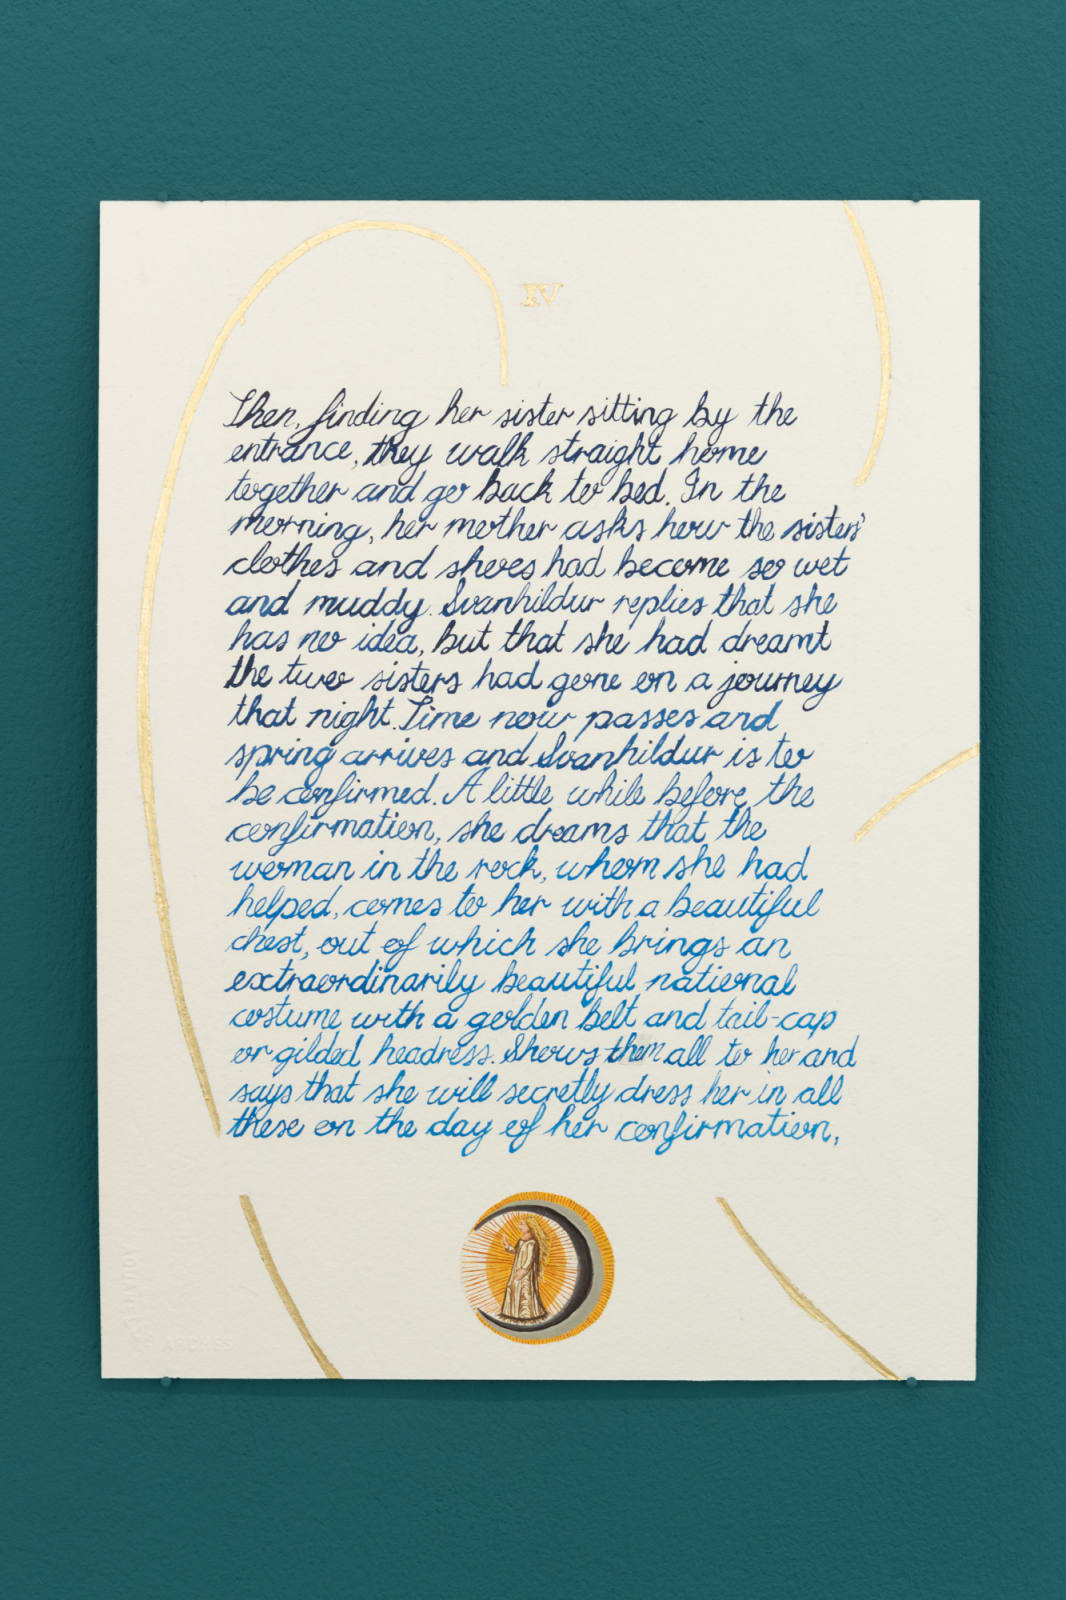 IV
Then, finding her sister sitting by the
entrance, they walk straight home
together and go back to bed. In the
morning, her mother asks how the sisters'
clothes and shoes had become so wet
and muddy. Svanhildur replies that she
has no idea, but that she had dreamt
the two sisters had gone on a journey
that night. Time now passes and
spring arrives and Svanhildur is to
be confirmed. A little while before the
confirmation, she dreams that the
woman in the rock, whom she had
helped, comes to her with a beautiful
chest, out of which she brings an
extraordinarily beautiful national
costume with a golden belt and tail-cap
or gilded headress. Shows them all to her and
says that she will secretly dress her in all
these on the day of her confirmation,
ARCHES